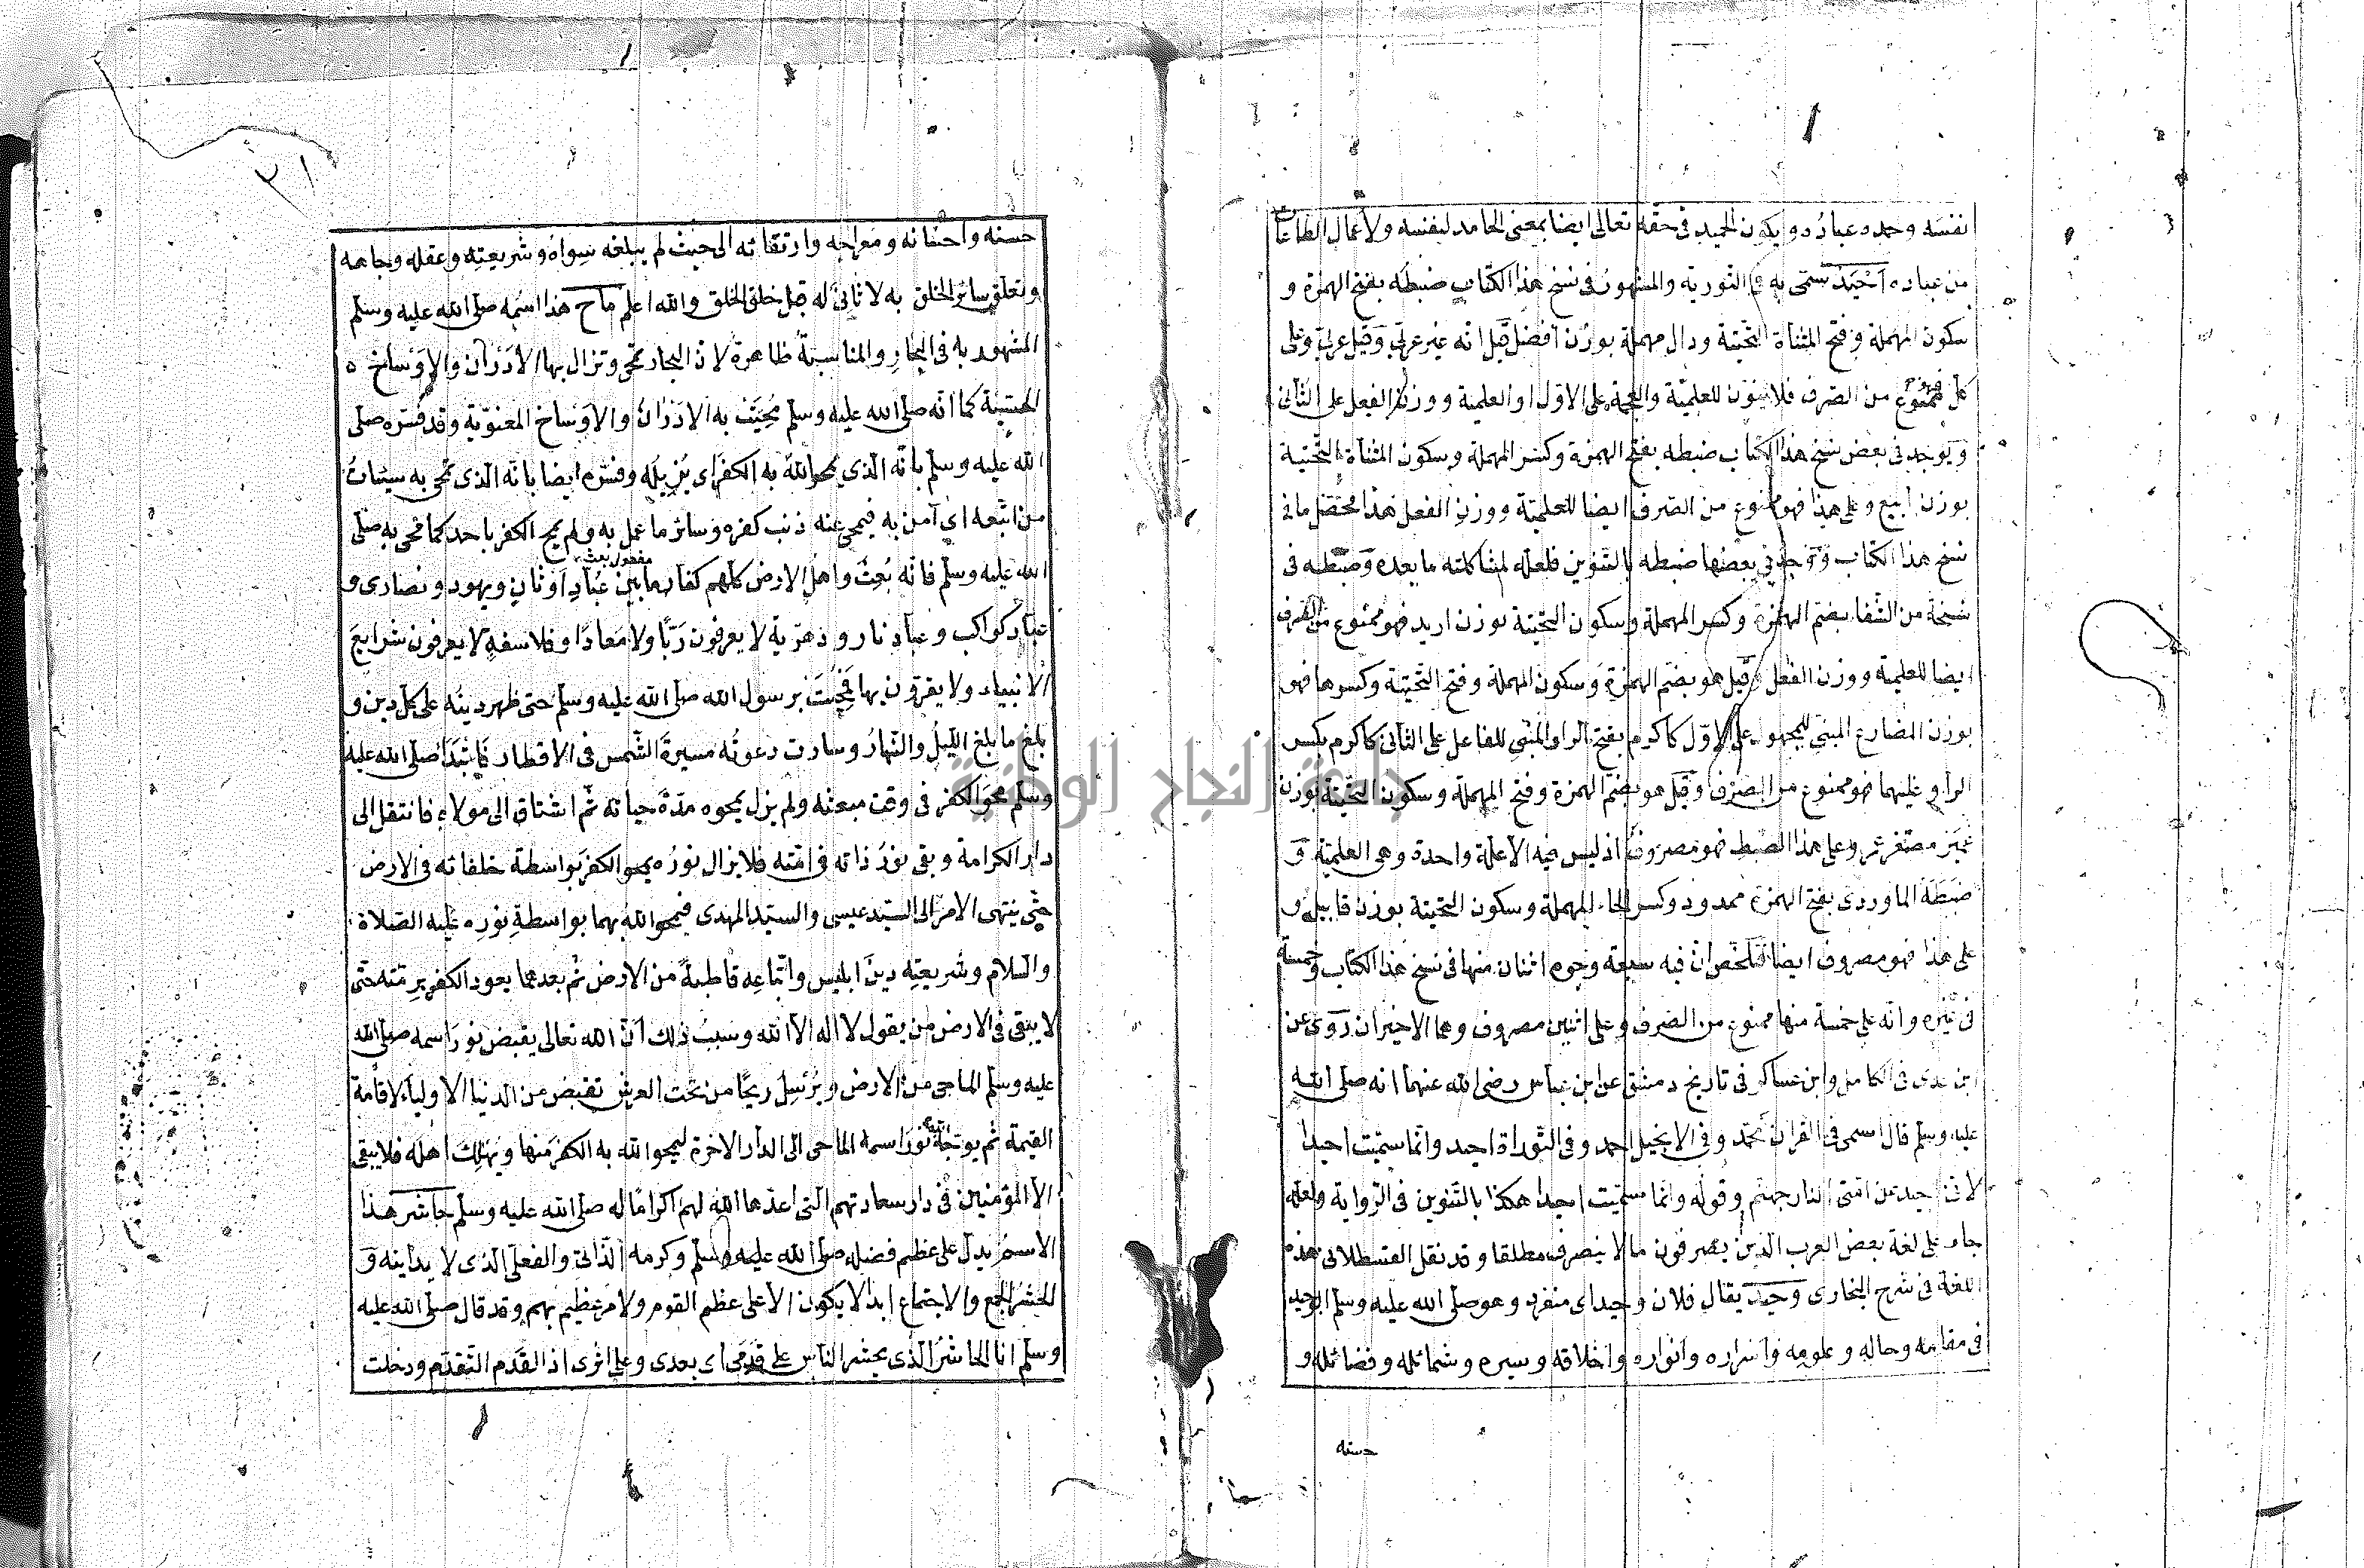 نفسه وحمده عباده ويكون الحميد في حقه تعالى ايضا بمعنى الحامد لنفسه ولأعمال الطاعات
من عباده أحيد سمى به في التورية والمشهور في نسخ هذا الكتاب ضبطه بفتح الهمزة و
سكون المهملة وفتح المثناة التحتية ودال مهملة بوزن افضل قيل انه غير عربي وقيل عربي وعلى
كل فهو ممنوع من الصرف فلا ينون للعلمية والعجمة على الاول او العلمية ووزن الفعل على الثاني
ويوجد في بعض نسخ هذا الكتاب ضبطه بفتح الهمزة وكسر المهملة وسكون المثناة التحتية
بوزن ابيع وعلى هذا فهو ممنوع من الصرف ايضا للعلمية ووزن الفعل هذا محصل ما في
نسخ هذا الكتاب ويوجد في بعضها ضبطه بالتنوين فلعله لمشاكلته ما بعده وضبطه في
نسخة من الشفا بضم الهمزة وكسر المهملة وسكون التحتية بوزن اريد فهو ممنوع من الصرف
ايضا للعلمية ووزن الفعل وقيل هو بضم الهمزة وسكون المهملة وفتح التحتية وكسرها فهو
بوزن المضارع المبني للمجهول على الاول كاكرم بفتح الرا والمبني للفاعل على الثاني كاكرم بكسر
الرا وعليهما فهو ممنوع من الصرف وقيل هو بضم الهمزة وفتح المهملة وسكون التحتية بوزن
عمير مصغر عمر وعلى هذا الضبط فهو مصروف اذ ليس فيه الا علة واحدة وهي العلمية و
ضبطه الماوردي بفتح الهمزة ممدود وكسر الحاء المهملة وسكون التحتية بوزن قابيل و
على هذا فهو مصروف ايضا فتلخص ان فيه سبعة وجوه اثنان منها في نسخ هذا الكتاب وخمسة
في غيره وانه على خمسة منها ممنوع من الصرف وعلى اثنين مصروف وهما الاخيران روى عن
ابن عدى في الكامل وابن عساكر في تاريخ دمشق عن ابن عباس رضى الله عنهما انه صلى الله
عليه وسلم قال اسمى في القران محمد وفي الانجيل احمد وفي التوراة احيد وانما سميت احيدا
لاني احيد عن امتى النار جهنم وقوله وانما سميت احيدا هكذا بالتنوين في الرواية ولعله
جاء على لغة بعض العرب الذين يصرفون ما لا ينصرف مطلقا وقد نقل القسطلاني هذه
اللغة في شرح البخارى وحيد يقال فلان وحيد اى منفرد وهو صلى الله عليه وسلم الوحيد
في مقامه وحاله وعلومه واسراره وانواره واخلاقه وسيره وشمائله وفضائله و
حسنه
٣١
حسنه واحسانه ومعراجه وارتقائه الى حيث لم يبلغه سواه وشريعته وعقله وجاهه
وتعلق سائر الخلق به لا ثاني له قبل خلق الخلق والله اعلم ماح هذا اسمه صلى الله عليه وسلم
المشهور به في البحار والمناسبة ظاهرة لان البحار تمحى وتزال بها الادران والاوساخ
الحسية كما انه صلى الله عليه وسلم محيت به الادران والاوساخ المعنوية وقد فسره صلى
الله عليه وسلم بانه الذي يمحو الله به الكفر اى يزيله وفسره ايضا بانه الذى تمحى به سيئات
من اتبعه اى آمن به فيمحى عنه ذنب كفره وسائر ما عمل به ولم يمح الكفر باحد كما محى به صلى
مفعول بعث
الله عليه وسلم فانه بعث واهل الارض كلهم كفار ما بين عباد اوثان ويهود ونصارى و
عباد كواكب وعباد نار ودهرية لا يعرفون ربا ولا معادا وفلاسفة لا يعرفون شرايع
الانبياء ولا يقرون بها فمحيت برسول الله صلى الله عليه وسلم حتى ظهر دينه على كل دين و
بلغ ما بلغ الليل والنهار وسارت دعوته مسيرة الشمس في الاقطار فابتدا صلى الله عليه
وسلم محو الكفر في وقت مبعثه ولم يزل يمحوه مدة حياته ثم اشتاق الى مولاه فانتقل الى
دار الكرامة وبقى نور ذاته في امته فلا يزال نوره يمحو الكفر بواسطة خلفائه في الارض
حتى ينتهى الامر الى السيد عيسى والسيد المهدى فيمحو الله بهما بواسطة نوره عليه الصلاة
والسلام وشريعته دين ابليس واتباعه قاطبة من الارض ثم بعدهما يعود الكفر برمته حتى
لا يبقى في الارض من يقول لا اله الا الله وسبب ذلك ان الله تعالى يقبض نور اسمه صلى الله
عليه وسلم الماحى من الارض ويرسل ريحا من تحت العرش تقبض من الدنيا الاولياء لاقامة
القيمة ثم يوجه الله نور اسمه الماحى الى الدار الاخرة ليمحو الله به الكفر منها ويهلك اهله فلا يبقى
الا المؤمنين في دار سعادتهم التى اعدها الله لهم اكراما له صلى الله عليه وسلم حاشر هذا
الاسم يدل على عظم فضله صلى الله عليه وسلم وكرمه الذاتي والفعلى الذى لا يدانيه و
الحشر الجمع والاجتماع ابدا لا يكون الا على عظم القوم ولامر عظيم بهم وقد قال صلى الله عليه
وسلم انا الحاشر الذى يحشر الناس على قدمى اى بعدى وعلى اثرى اذ القدم التقدم ودخلت
جامعة النجاح الوطنية